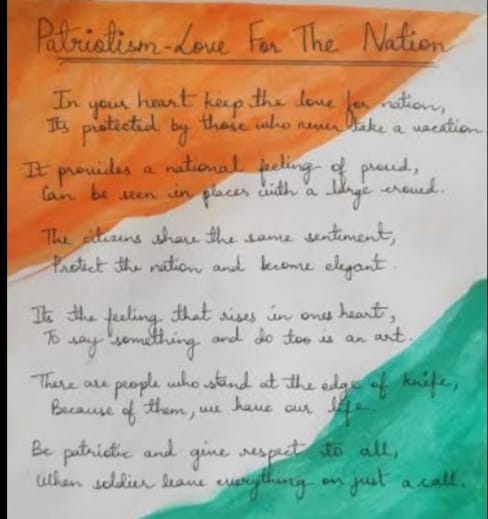 Patriotism-Love For The Nation
In your heart keep the love for nation,
Its protected by those who never take a vacation
It provides a national feeling of proud,
Can be seen in places with a large crowd.
The citizens share the same sentiment,
Protect the nation and become elegant.
Its the feeling that rises in ones heart,
To say something and do too is an art.
There are people who stand at the edge of knife,
Because of them, we have our life.
Be patriotic and give respect to all,
When soldier leave everything on just a call.